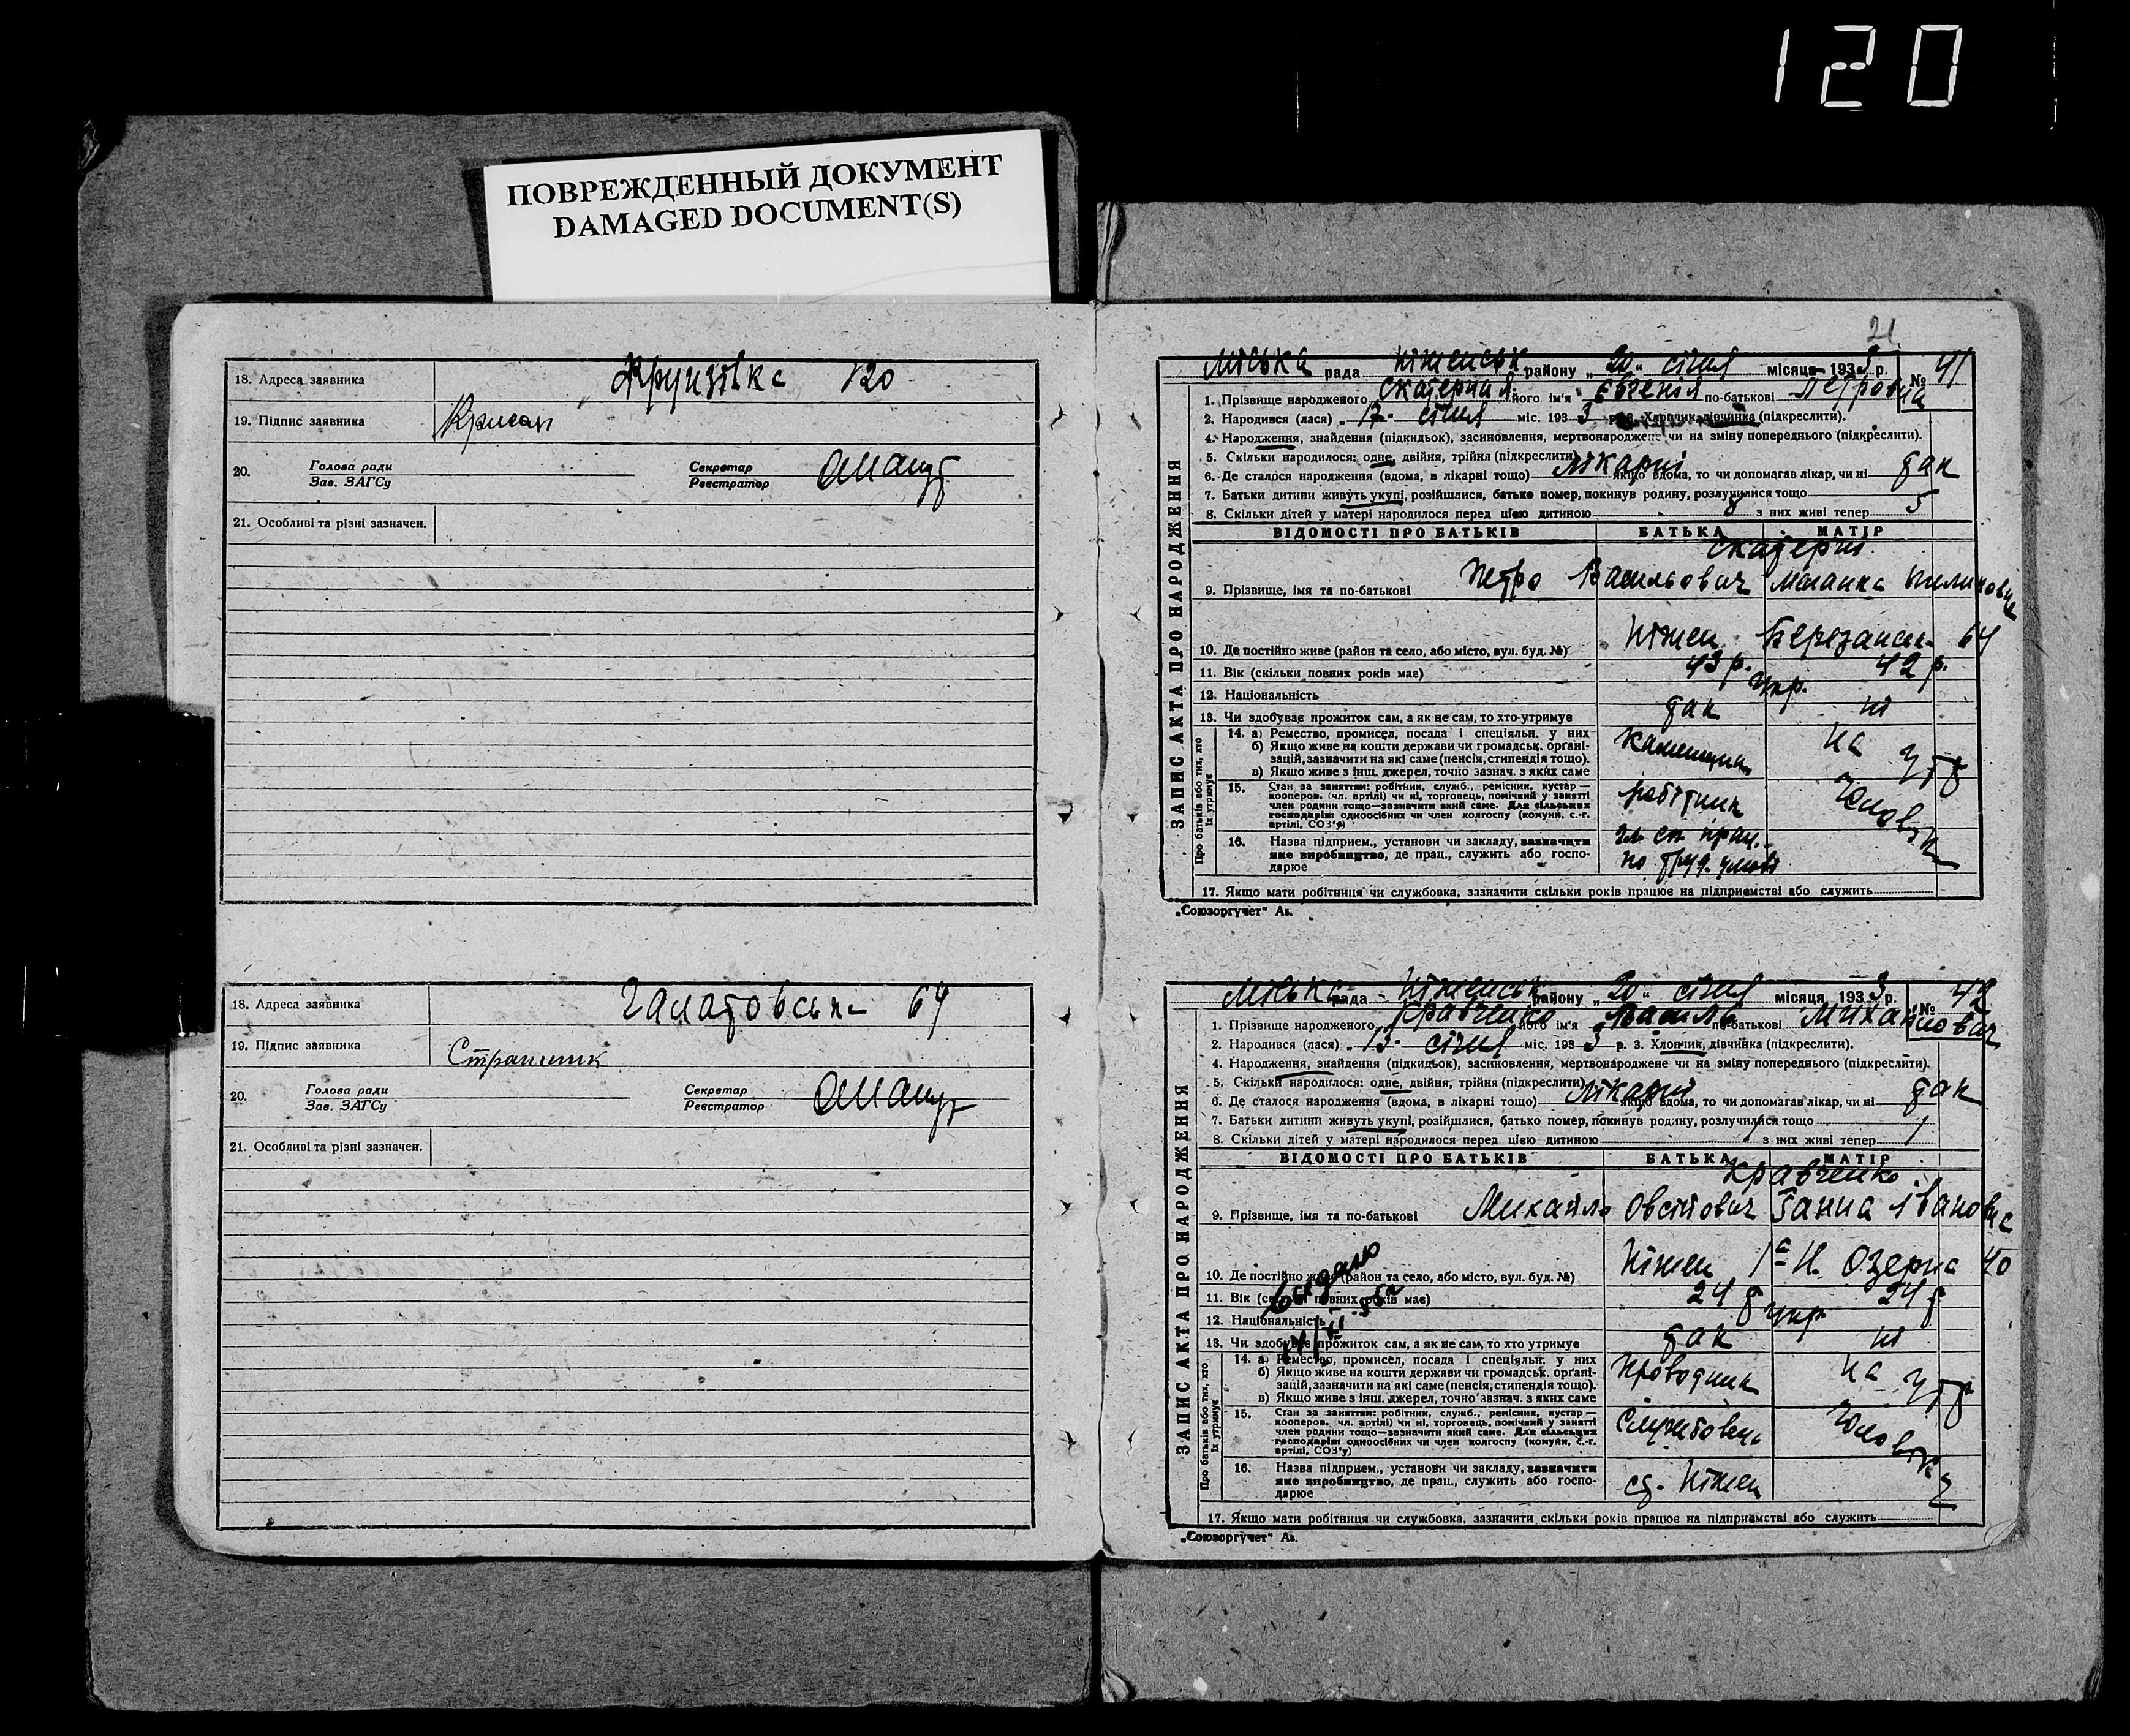 120
ПОВРЕЖДЕННЫЙ ДОКУМЕНТ
DAMAGED DOCUMENT(S)
18. Адреса заявника 120
19. Підпис заявника
20. Голова ради Секретар
Зав. ЗАГСу Реєстратор
21. Особливі та різні зазначен.
18. Адреса заявника Галатовська 64
19. Підпис заявника Страшник
20. Голова ради Секретар
Зав. ЗАГСу Реєстратор
21. Особливі та різні зазначен.
21
ЗАПИС АКТА ПРО НАРОДЖЕННЯ
Міська рада Ніженськ району „20" січня місяця 1933 р. № 41
1. Прізвище народженого Скатерная його ім'я Євгенія по-батькові Петровна
2. Народився (лася) 17 січня міс. 1933 р. 3. Хлопчик, дівчинка (підкреслити).
4. Народження, знайдення (підкидьок), засиновлення, мертвонароджене чи на зміну попереднього (підкреслити).
5. Скільки народилося: одне, двійня, трійня (підкреслити)
6. Де сталося народження (вдома, в лікарні тощо) лікарні якщо вдома, то чи допомагав лікар, чи ні так
7. Батьки дитини живуть укупі, розійшлися, батько помер, покинув родину, розлучилися тощо
8. Скільки дітей у матері народилося перед цією дитиною 8 з них живі тепер 5
ВІДОМОСТІ ПРО БАТЬКІВ БАТЬКА МАТІР
Скатерні
9. Прізвище, імя та по-батькові Петро Васильович Меланка Пилиповна
10. Де постійно живе (район та село, або місто, вул. буд. №) Ніжен Березанськ 64
11. Вік (скільки повних років має) 43 р. 42 р.
12. Національність укр.
13. Чи здобуває прожиток сам, а як не сам, то хто утримує так ні
Про батьків або тих, хто їх утримує
14. а) Ремество, промисел, посада і спеціяльн. у них
б) Якщо живе на кошти держави чи громадськ. органі-
зацій, зазначити на які саме (пенсія, стипендія тощо).
в) Якщо живе з інш. джерел, точно зазнач. з яких саме
на утр
15. Стан за заняттям: робітник, служб., ремісник, кустар —
кооперов. (чл. артілі) чи ні, торговець, помічний у занятті
член родини тощо—зазначити який саме. Для сільських
господарів: одноосібних чи член колгоспу (комуни, с.-г.
артілі, СОЗ'у)
робітник
16. Назва підприєм., установи чи закладу, зазначити
яке виробництво, де прац., служить або госпо-
дарює
по труд. умові
17. Якщо мати робітниця чи службовка, зазначити скільки років працює на підприємстві або служить
„Союзоргучет" Ав.
ЗАПИС АКТА ПРО НАРОДЖЕННЯ
Міська рада Ніженськ району „20" січня місяця 1933 р. № 42
1. Прізвище народженого Кравченко його ім'я Василь по-батькові Михайлович
2. Народився (лася) 13 січня міс. 1933 р. 3. Хлопчик, дівчинка (підкреслити).
4. Народження, знайдення (підкидьок), засиновлення, мертвонароджене чи на зміну попереднього (підкреслити).
5. Скільки народилося: одне, двійня, трійня (підкреслити)
6. Де сталося народження (вдома, в лікарні тощо) лікарні якщо вдома, то чи допомагав лікар, чи ні так
7. Батьки дитини живуть укупі, розійшлися, батько помер, покинув родину, розлучилися тощо
8. Скільки дітей у матері народилося перед цією дитиною 1 з них живі тепер 1
ВІДОМОСТІ ПРО БАТЬКІВ БАТЬКА МАТІР
Кравченко
9. Прізвище, імя та по-батькові Михайло Овсійович Ганна Івановна
10. Де постійно живе (район та село, або місто, вул. буд. №) Ніжен Н. Озерна 40
11. Вік (скільки повних років має) 24 р 24 р
12. Національність укр
13. Чи здобуває прожиток сам, а як не сам, то хто утримує так ні
видано
Про батьків або тих, хто їх утримує
14. а) Ремество, промисел, посада і спеціяльн. у них
б) Якщо живе на кошти держави чи громадськ. органі-
зацій, зазначити на які саме (пенсія, стипендія тощо).
в) Якщо живе з інш. джерел, точно зазнач. з яких саме
Проводник на утр
15. Стан за заняттям: робітник, служб., ремісник, кустар —
кооперов. чл. артілі) чи ні, торговець, помічний у занятті
член родини тощо—зазначити який саме. Для сільських
господарів: одноосібних чи член колгоспу (комуни, с.-г.
артілі, СОЗ'у)
Службовець чоловіка
16. Назва підприєм., установи чи закладу, зазначити
яке виробництво, де прац., служить або госпо-
дарює
ст. Ніжен
17. Якщо мати робітниця чи службовка, зазначити скільки років працює на підприємстві або служить
„Союзоргучет" Ав.